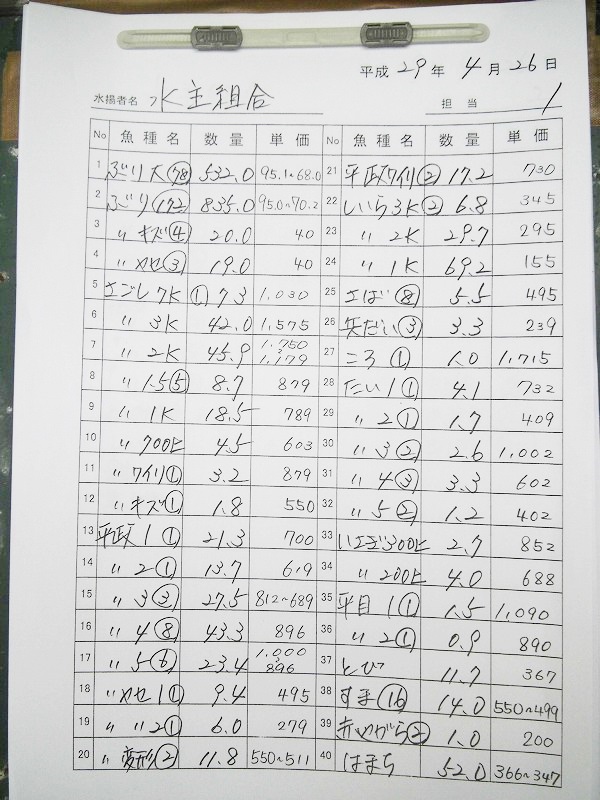 平成 29 年 4 月 26 日
水揚者名 水主組合 担当
No 魚種名 数量 単価
1 ぶり大(78) 532.0 95.1~68.0
2 ぶり(172) 835.0 95.0~70.2
3 〃キズ(4) 20.0 40
4 〃ヤセ(3) 19.0 40
5 さごし7K(1) 7.3 1,030
6 〃 3K 42.0 1,575
7 〃 2K 45.9 1,750~1,179
8 〃 1.5(5) 8.7 879
9 〃 1K 18.5 789
10 〃 700上 4.5 603
11 〃ワイリ(1) 3.2 879
12 〃キズ(1) 1.8 550
13 平政1(1) 21.3 700
14 〃2(1) 13.7 619
15 〃3(3) 27.5 812~689
16 〃4(8) 43.3 896
17 〃5(6) 23.4 1,000~896
18 〃ヤセ1(1) 9.4 495
19 〃 〃2(1) 6.0 279
20 〃変形(2) 11.8 550~511
No 魚種名 数量 単価
21 平政ワイリ(2) 17.2 730
22 しいら3K(2) 6.8 345
23 〃 2K 29.7 295
24 〃 1K 69.2 155
25 さば(8) 5.5 495
26 矢だい(3) 3.3 239
27 ころ(1) 1.0 1,715
28 たい1(1) 4.1 732
29 〃2(1) 1.7 409
30 〃3(2) 2.6 1,002
31 〃4(3) 3.3 602
32 〃5(2) 1.2 402
33 いさぎ300上 2.7 852
34 〃200上 4.0 688
35 平目1(1) 1.5 1,090
36 〃2(1) 0.9 890
37 とび 11.7 367
38 すま(16) 14.0 550~499
39 赤やがら(2) 1.0 200
40 はまち 52.0 366~347